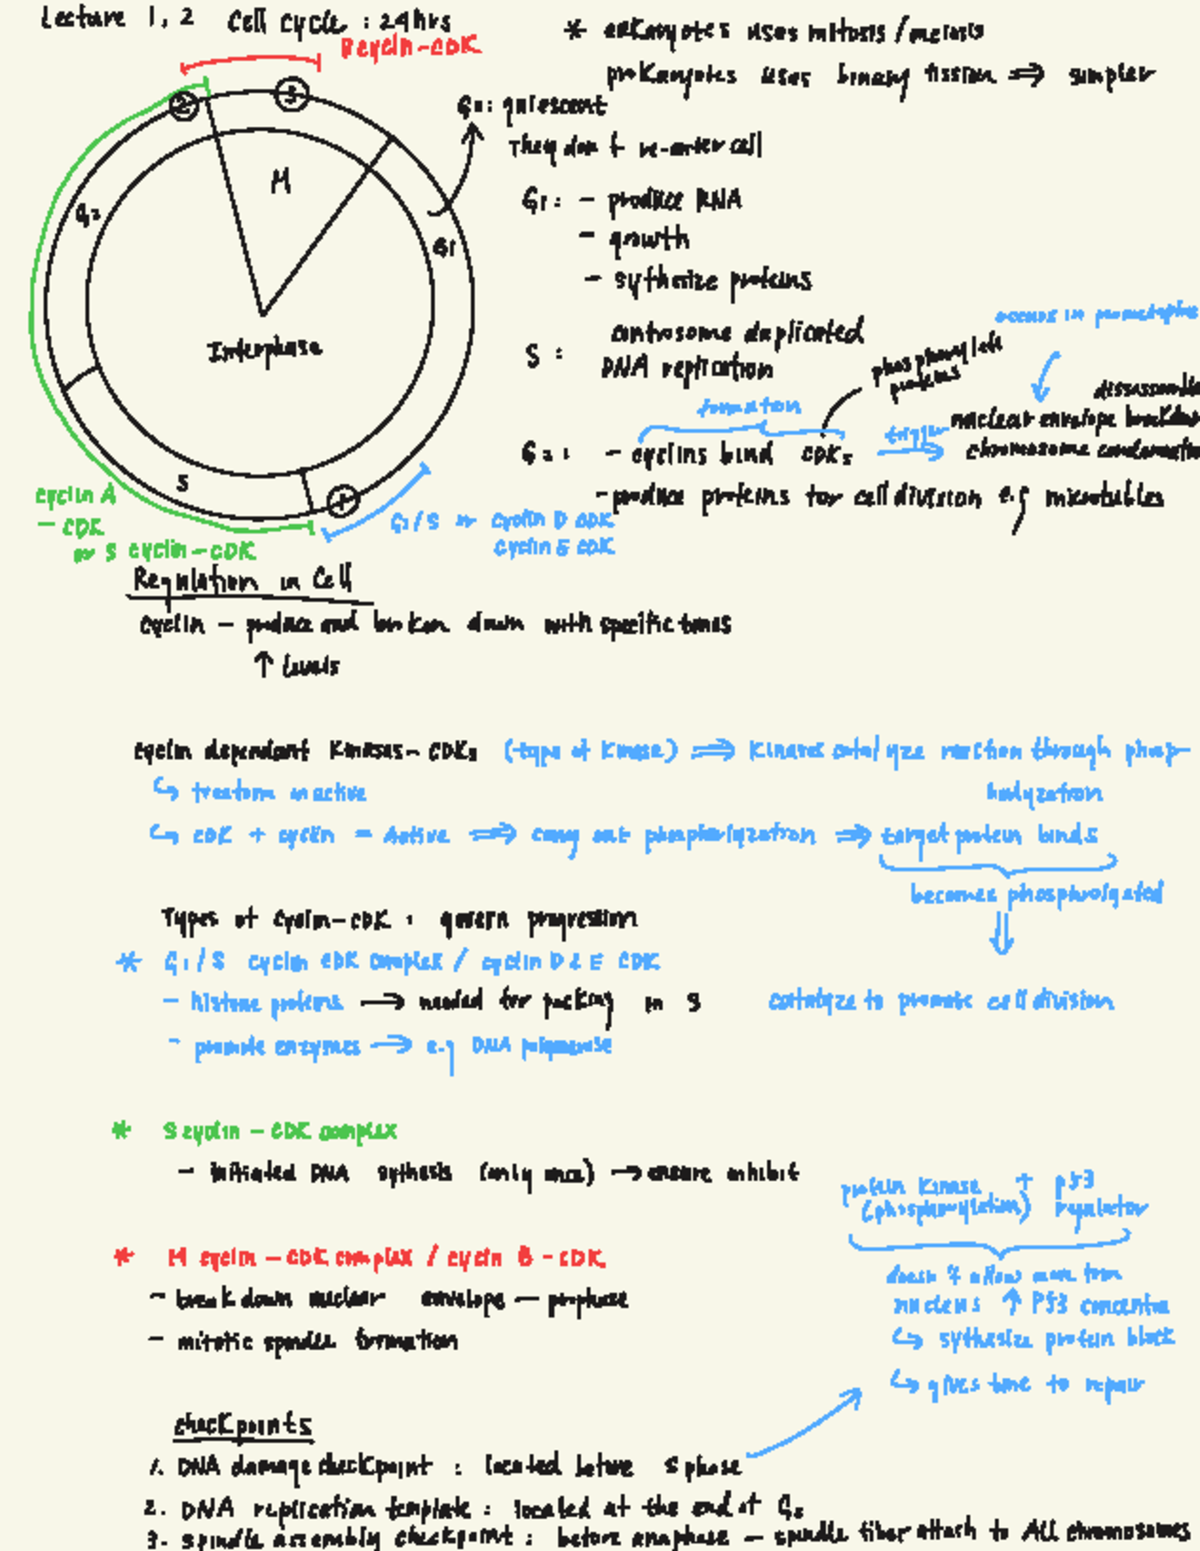 Lecture 1, 2 Cell cycle : 24hrs
B cyclin-CDK
* eukaryotes uses mitosis/meiosis
prokaryotes uses binary fission ⇒ simpler
2
3
G0: quiescent
They don't re-enter cell
M
G2
G1
G1: - produce RNA
- growth
- sythesize proteins
Interphase
occurs in prometaphase
S : centrosome duplicated
DNA replication
phosphorylate
proteins
formation
trigger
nuclear envelope breakdown
G2: - cyclins bind CDKs
chromosome condensation
- produce proteins for cell division e.g microtubles
S
1
cyclin A
- CDK
or S cyclin-CDK
G1/S or cyclin D CDK
cyclin E CDK
Regulation in Cell
cyclin - produce and broken down with specific times
↑ levels
cyclin dependant kinases- CDKs (type of kinase) ⇒ kinases catalyze reaction through phosp-
horlyzation
↳ inactive
↳ CDK + cyclin = Active ⇒ carry out phosphorlyzation ⇒ target protein binds
becomes phosphorolyated
Types of cyclin-CDK : govern progression
* G1/S cyclin CDK complex / cyclin D & E CDK
- histone proteins → needed for packing in S
catalyze to promote cell division
- promote enzymes → e.g DNA polymerase
* S cyclin - CDK complex
- initiated DNA sythesis (only once) → ensure inhibit
protein kinase + p53
(phosphorylation) regulator
* M cyclin - CDK complex / cyclin B - CDK
- break down nuclear envelope - prophase
- mitotic spindle formation
doesn't allow move from
nucleus ↑ P53 concentra
↳ sythesize protein block
↳ gives time to repair
checkpoints
1. DNA damage checkpoint : located before S phase
2. DNA replication template : located at the end of G2
3. spindle assembly checkpoint : before anaphase - spindle fiber attach to All chromosomes